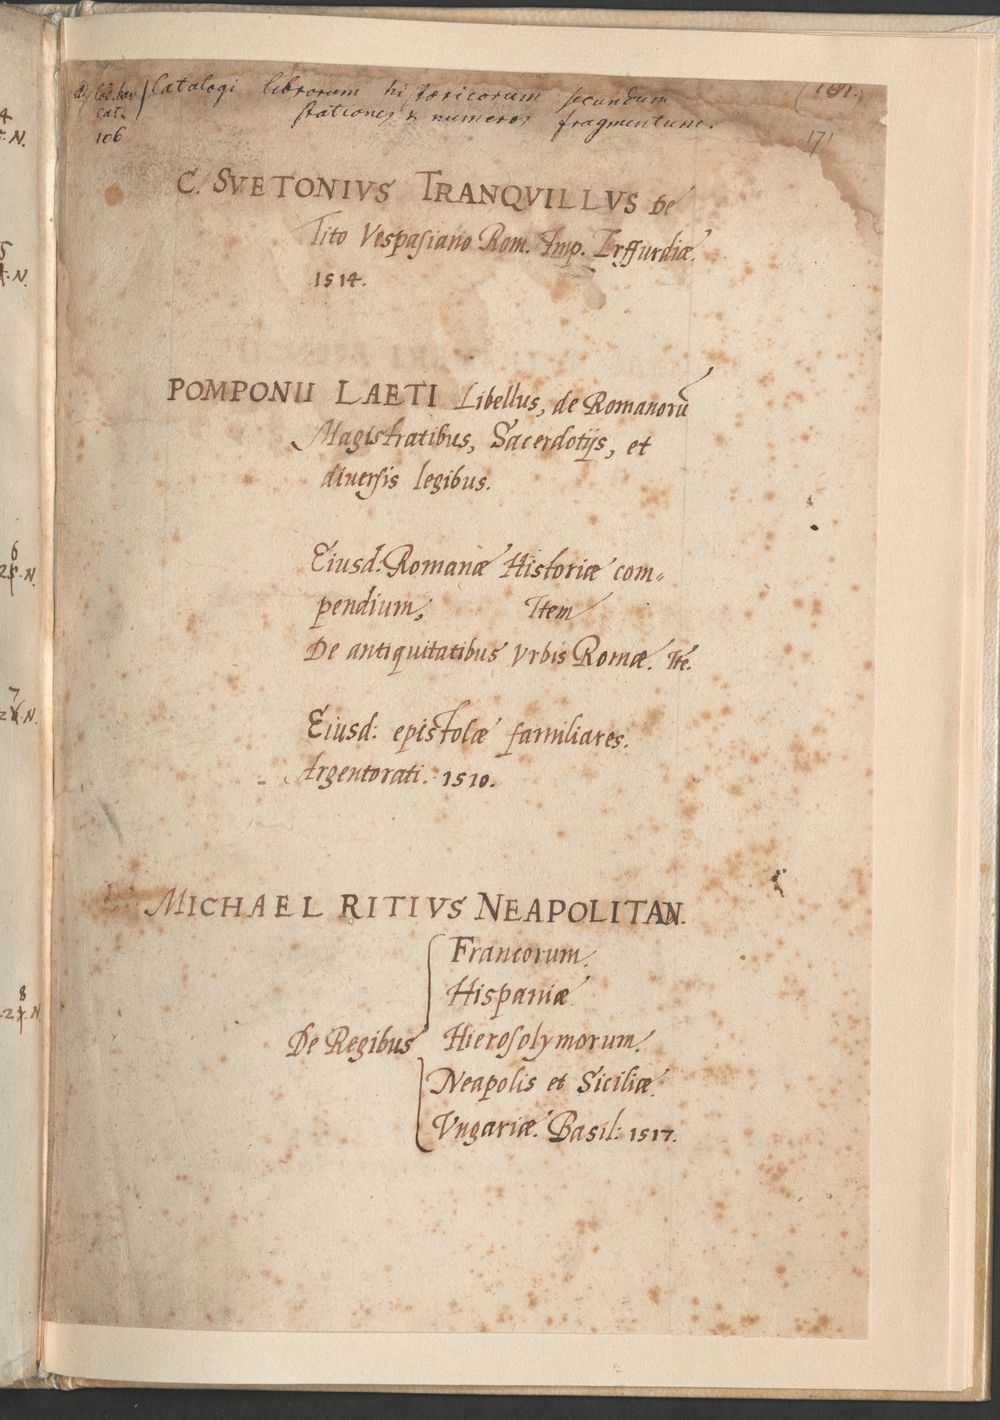 ad Cod. bav. Catalogi librorum historicorum secundum (191.)
cat. stationes & numeros fragmentum.
106
171
C. SVETONIVS TRANQVILLVS de
Tito Vespasiano Rom. Imp. Erffurdiæ.
1514.
POMPONII LAETI Libellus, de Romanorū
Magistratibus, Sacerdotijs, et
diuersis legibus.
Eiusd: Romanæ Historiæ com=
pendium, Item
De antiquitatibus Vrbis Romæ. Itē.
Eiusd: epistolæ familiares.
Argentorati. 1510.
MICHAEL RITIVS NEAPOLITAN.
Francorum.
Hispaniæ
De Regibus Hierosolymorum.
Neapolis et Siciliæ
Vngariæ. Basil: 1517.
4
N.
5
N.
6
25. N.
7
N.
8
N.